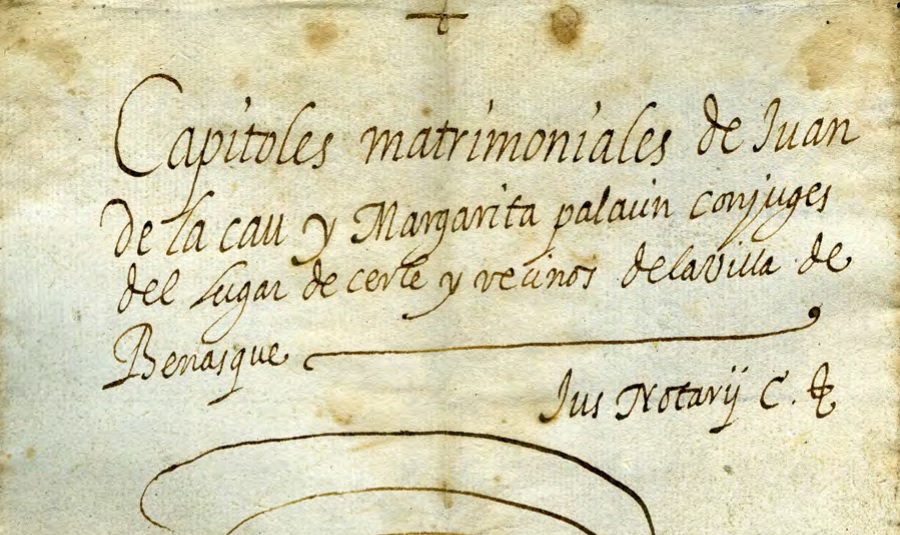 Capitoles matrimoniales de Juan
De la cau y Margarita palauin conjuges
del lugar de cerle y vecinos de la villa de
Benasque
Jus Notarij C.